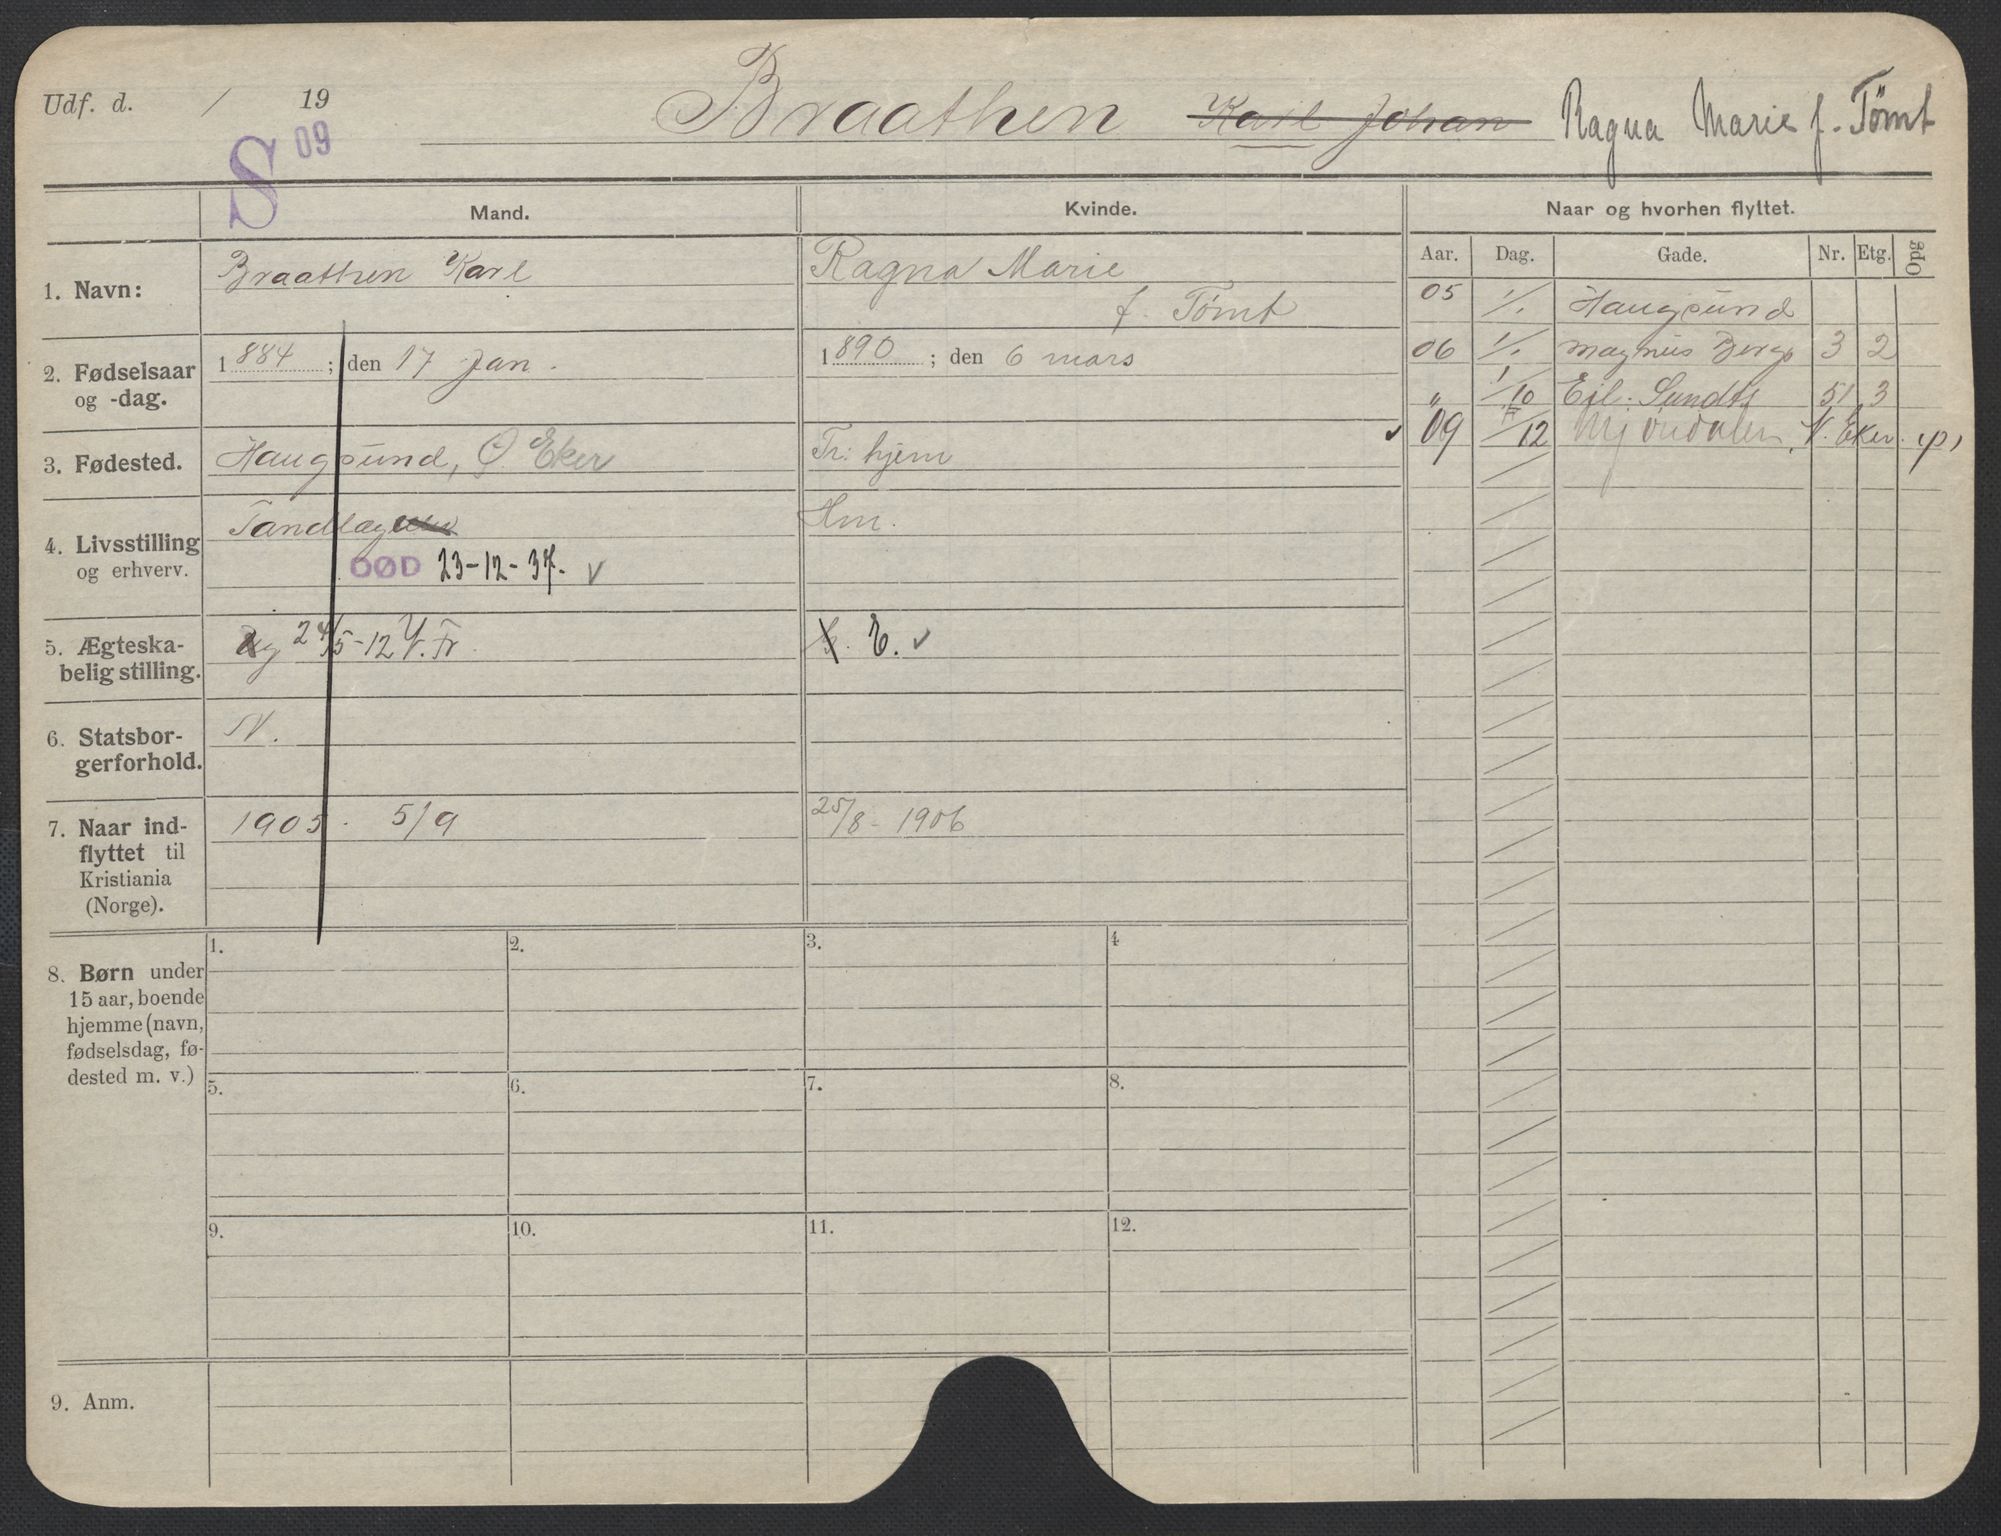 Udf. d. / 19 Braathen Karl Johan Ragna Marie f. Tømt
S 09
Mand. Kvinde. Naar og hvorhen flyttet.
Aar. Dag. Gade. Nr. Etg. Opg
1. Navn: Braathen Karl Ragna Marie
f. Tømt
05 / Haugsund
2. Fødselsaar 1884; den 17 Jan. 1890; den 6 mars
og -dag.
06 / Magnus Bergs 3 2
" 1/10 Eil. Sundts 51 3
09 /12 Mjøndalen, N. Eker.
3. Fødested. Haugsund, Ø. Eker Tr: hjem
4. Livsstilling Tandlæge Hm.
og erhverv. DØD 23-12-37. v
5. Ægteska- Ug 24/5-12 V. Tr. E. v
belig stilling.
6. Statsbor- N.
gerforhold.
7. Naar ind- 1905. 5/9 25/8- 1906
flyttet til
Kristiania
(Norge).
8. Børn under 1. 2. 3. 4
15 aar, boende
hjemme (navn,
fødselsdag, fø-
dested m. v.) 5. 6. 7. 8.
9. 10. 11. 12.
9. Anm.